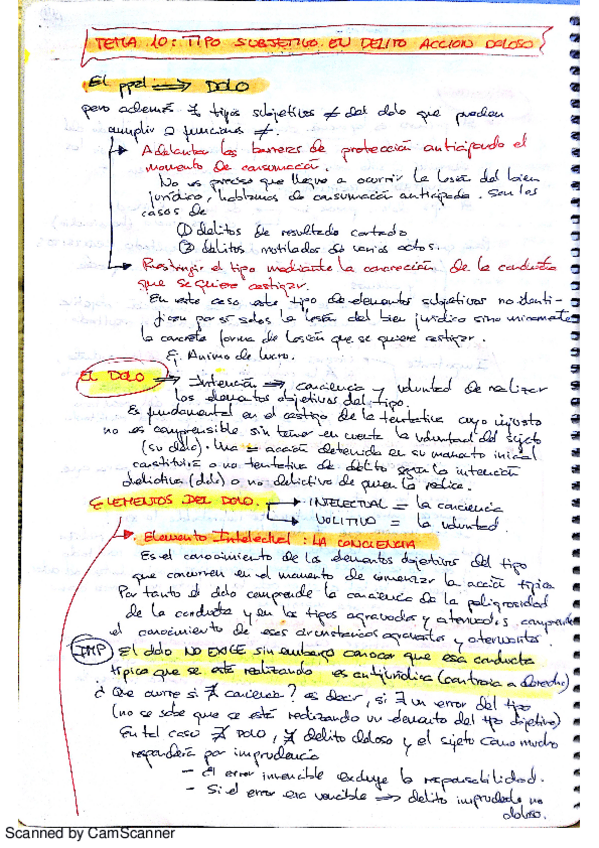 TEMA 10: TIPO SUBJETIVO EN DELITO ACCIÓN DOLOSO
El ppal ⟹ DOLO
pero además ∃ tipos subjetivos ≠ del dolo que pueden
cumplir 2 funciones ≠.
Adelantar las barreras de protección anticipando el
momento de consumación.
No es preciso que llegue a ocurrir la lesión del bien
jurídico, hablamos de consumación anticipada. Son los
casos de
① delitos de resultado cortado
② delitos mutilados de varios actos.
Restringir el tipo mediante la concreción de la conducta
que se quiere castigar.
En este caso este tipo de elementos subjetivos no identi-
fican por si solos la lesión del bien jurídico sino únicamente
la concreta forma de lesión que se quiere castigar.
Ej. Animo de lucro.
EL DOLO ⟹ Intención ⟹ conciencia y voluntad de realizar
los elementos objetivos del tipo.
Es fundamental en el castigo de la tentativa cuyo injusto
no es comprensible sin tener en cuenta la voluntad del sujeto
(su dolo). Una = acción detenida en su momento inicial
constituirá o no tentativa de delito según la intención
delictiva (dolo) o no delictiva de quien la realice.
ELEMENTOS DEL DOLO. → INTELECTUAL = la conciencia
→ VOLITIVO = la voluntad.
Elemento Intelectual: LA CONCIENCIA
Es el conocimiento de los elementos objetivos del tipo
que concurren en el momento de comenzar la acción típica
Por tanto el dolo comprende la conciencia de la peligrosidad
de la conducta y en los tipos agravados y atenuados comprende
el conocimiento de esas circunstancias agravantes y atenuantes.
IMP El dolo NO EXIGE sin embargo conocer que esa conducta
típica que se está realizando es antijurídica (contraria a derecho)
¿Que ocurre si ∄ conciencia? es decir, si ∃ un error del tipo
(no se sabe que se está realizando un elemento del tipo objetivo)
En tal caso ∄ DOLO, ∄ delito doloso y el sujeto como mucho
responderá por imprudencia
- El error invencible excluye la responsabilidad.
- Si el error era vencible ⟹ delito imprudente no
doloso.
Scanned by CamScanner